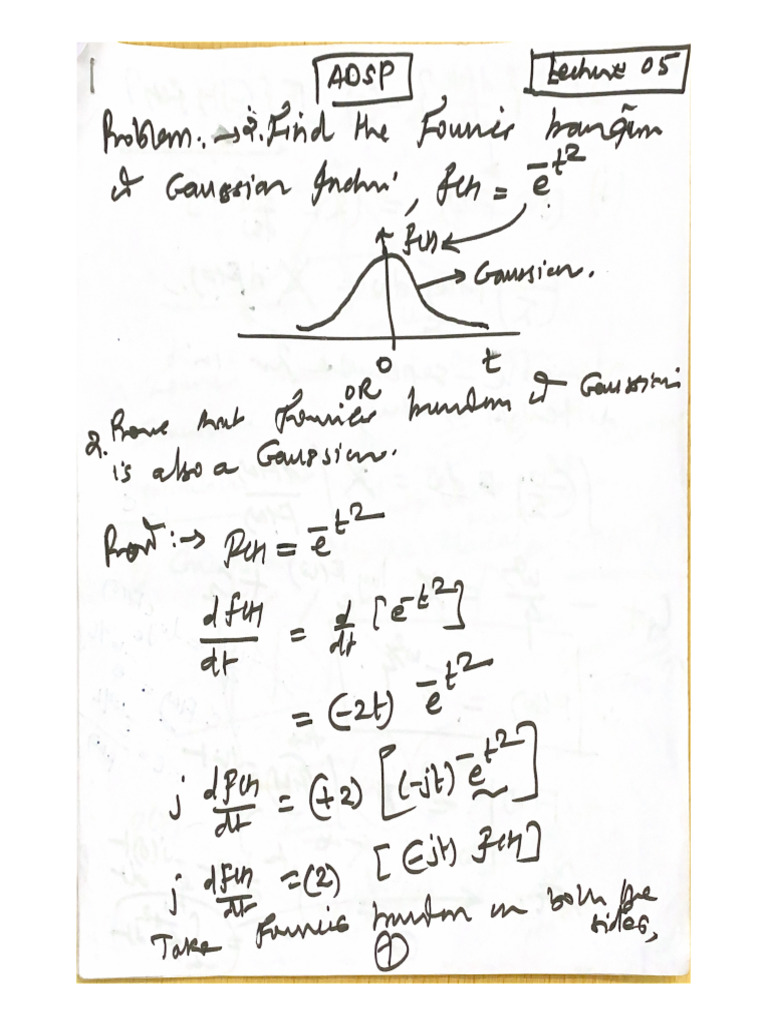 ADSP
Lecture 05
Problem:→ 1. Find the Fourier transform
of Gaussian function, f(t) = e^{-t^2}
f(t)
Gaussian.
0 t
OR
2. Prove that Fourier transform of Gaussian
is also a Gaussian.
Proof:→ f(t) = e^{-t^2}
df(t)/dt = d/dt [e^{-t^2}]
= (-2t) e^{-t^2}
j df(t)/dt = (+2) [(-jt) e^{-t^2}]
j df(t)/dt = (2) [(-jt) f(t)]
Take Fourier transform on both the sides,
1